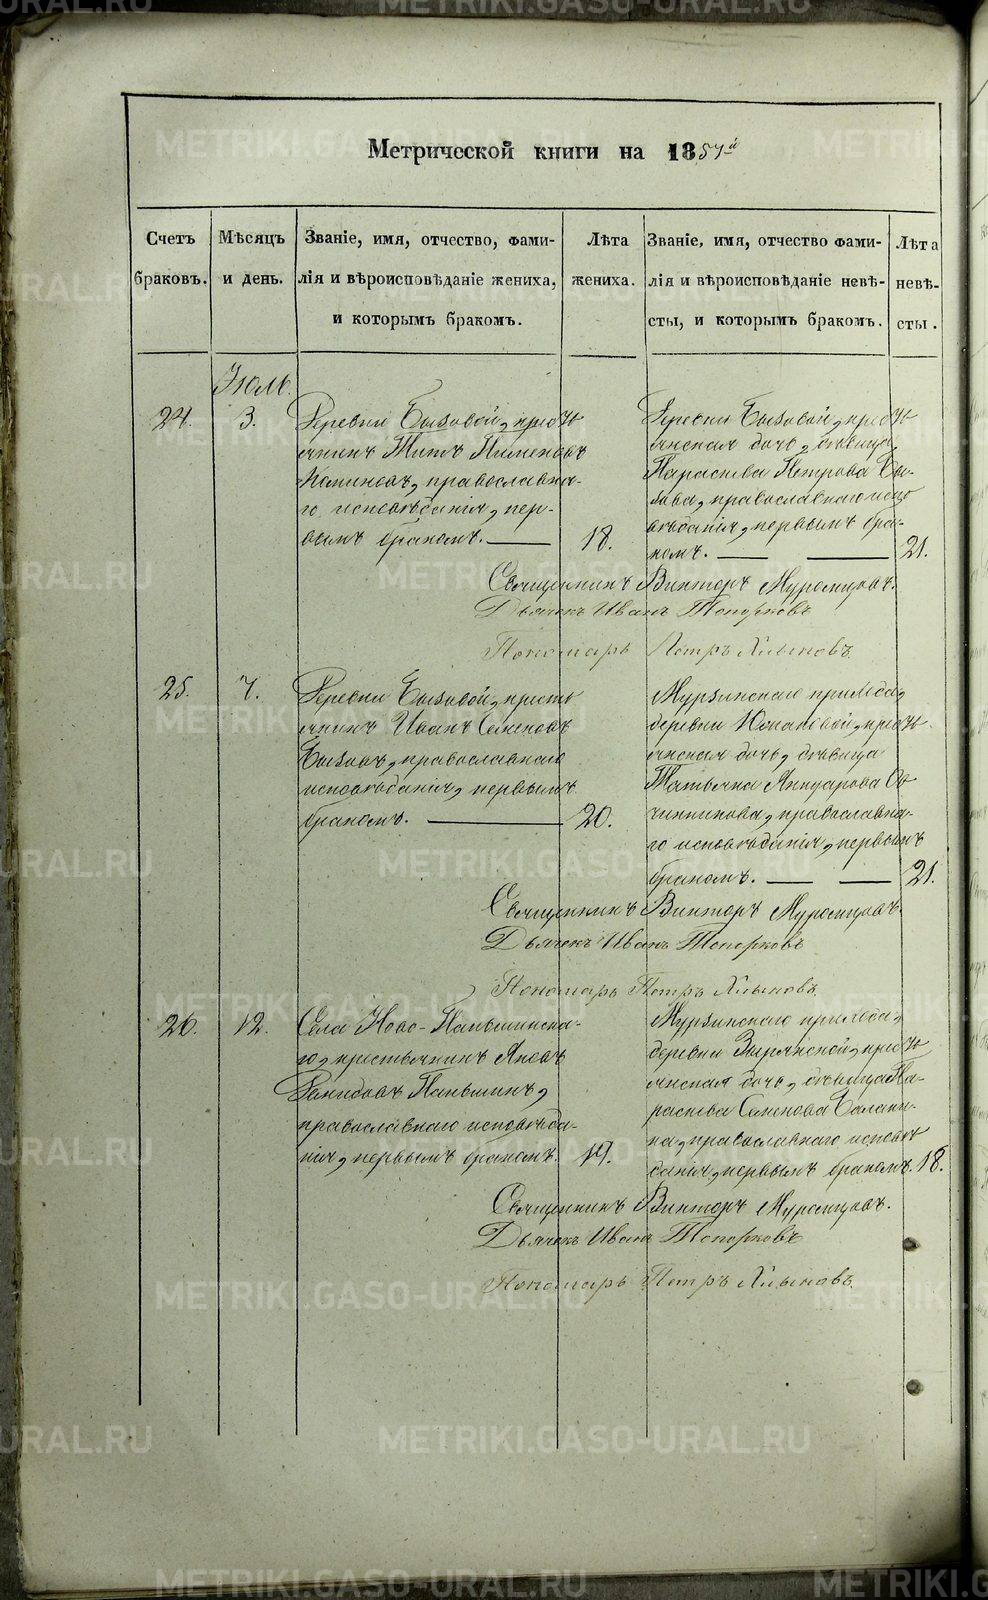 METRIKI.GASO-URAL.RU
Метрической книги на 1857й
Счетъ браковъ.
Мѣсяцъ и день.
Званіе, имя, отчество, фами-
лія и вѣроисповѣданіе жениха,
и которымъ бракомъ.
Лѣта жениха.
Званіе, имя, отчество фами-
лія и вѣроисповѣданіе невѣ-
сты, и которымъ бракомъ.
Лѣта невѣ-
сты.
Іюль.
24.
3.
Деревни Бызовой, кресть
янинъ Титъ Пименовъ
православна-
го исповѣданія, пер-
вымъ бракомъ.
18.
Деревни Бызовой, кресть
янская дочь, дѣвица,
Параскева Петрова Бы-
зова, православнаго испо
вѣданія, первымъ бра-
комъ.
21.
Священникъ Викторъ Муромцовъ.
Дьячекъ Иванъ Топорковъ
Пономарь Петръ Хлыновъ
25.
7.
Деревни Бызовой, кресть
янинъ Иванъ Семеновъ
Бызовъ, православнаго
исповѣданія, первымъ
бракомъ.
20.
Мурзинскаго прихода,
деревни Южаковой, кресть
янская дочь, дѣвица
Татьяна Аннуарова Ов
чинникова, православна-
го исповѣданія, первымъ
бракомъ.
21.
Священникъ Викторъ Муромцовъ.
Дьячекъ Иванъ Топорковъ
Пономарь Петръ Хлыновъ.
26.
12.
Села Ново-Паньшинска-
го, крестьянинъ Яковъ
Даниловъ Паньшинъ,
православнаго исповѣда-
нія, первымъ бракомъ.
19.
Мурзинскаго прихода,
деревни Зырянской, кресть
янская дочь, дѣвица Па-
раскева Семенова Балаки-
на, православнаго исповѣ
данія, первымъ бракомъ.
18.
Священникъ Викторъ Муромцовъ.
Дьячекъ Иванъ Топорковъ
Пономарь Петръ Хлыновъ.